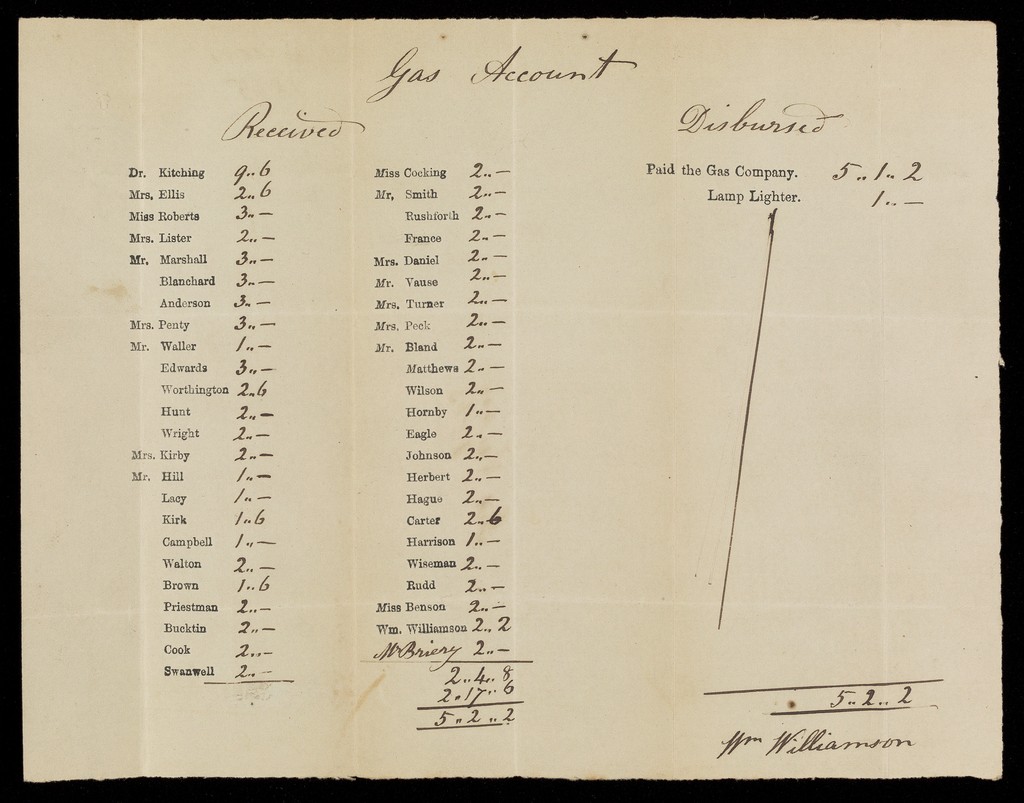 Gas Account
Received
Dr. Kitching 9..6
Mrs. Ellis 2..6
Miss Roberts 3..—
Mrs. Lister 2..—
Mr. Marshall 3..—
Blanchard 3..—
Anderson 3..—
Mrs. Penty 3..—
Mr. Waller 1..—
Edwards 3..—
Worthington 2..6
Hunt 2..—
Wright 2..—
Mrs. Kirby 2..—
Mr. Hill 1..—
Lacy 1..—
Kirk 1..6
Campbell 1..—
Walton 2..—
Brown 1..6
Priestman 2..—
Bucktin 2..—
Cook 2..—
Swanwell 2..—
Miss Cocking 2..—
Mr. Smith 2..—
Rushforth 2..—
France 2..—
Mrs. Daniel 2..—
Mr. Vause 2..—
Mrs. Turner 2..—
Mrs. Peck 2..—
Mr. Bland 2..—
Matthews 2..—
Wilson 2..—
Hornby 1..—
Eagle 2..—
Johnson 2..—
Herbert 2..—
Hague 2..—
Carter 2..6
Harrison 1..—
Wiseman 2..—
Rudd 2..—
Miss Benson 2..—
Wm. Williamson 2..2
Mr Briery 2..—
2..4..8
2..17..6
5..2..2
Disbursed
Paid the Gas Company. 5..1..2
Lamp Lighter. 1..—
5..2..2
Wm Williamson